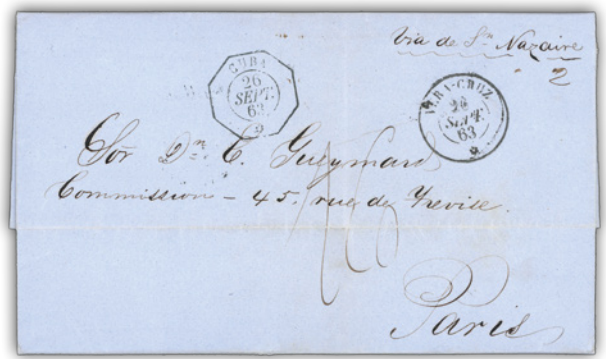 Via de Sn. Nazaire
2
CUBA
26
SEPT.
63
VERA-CRUZ
SEPT.
63
Sor Dn. C.
Commission - 45, rue de Trevise.
Paris